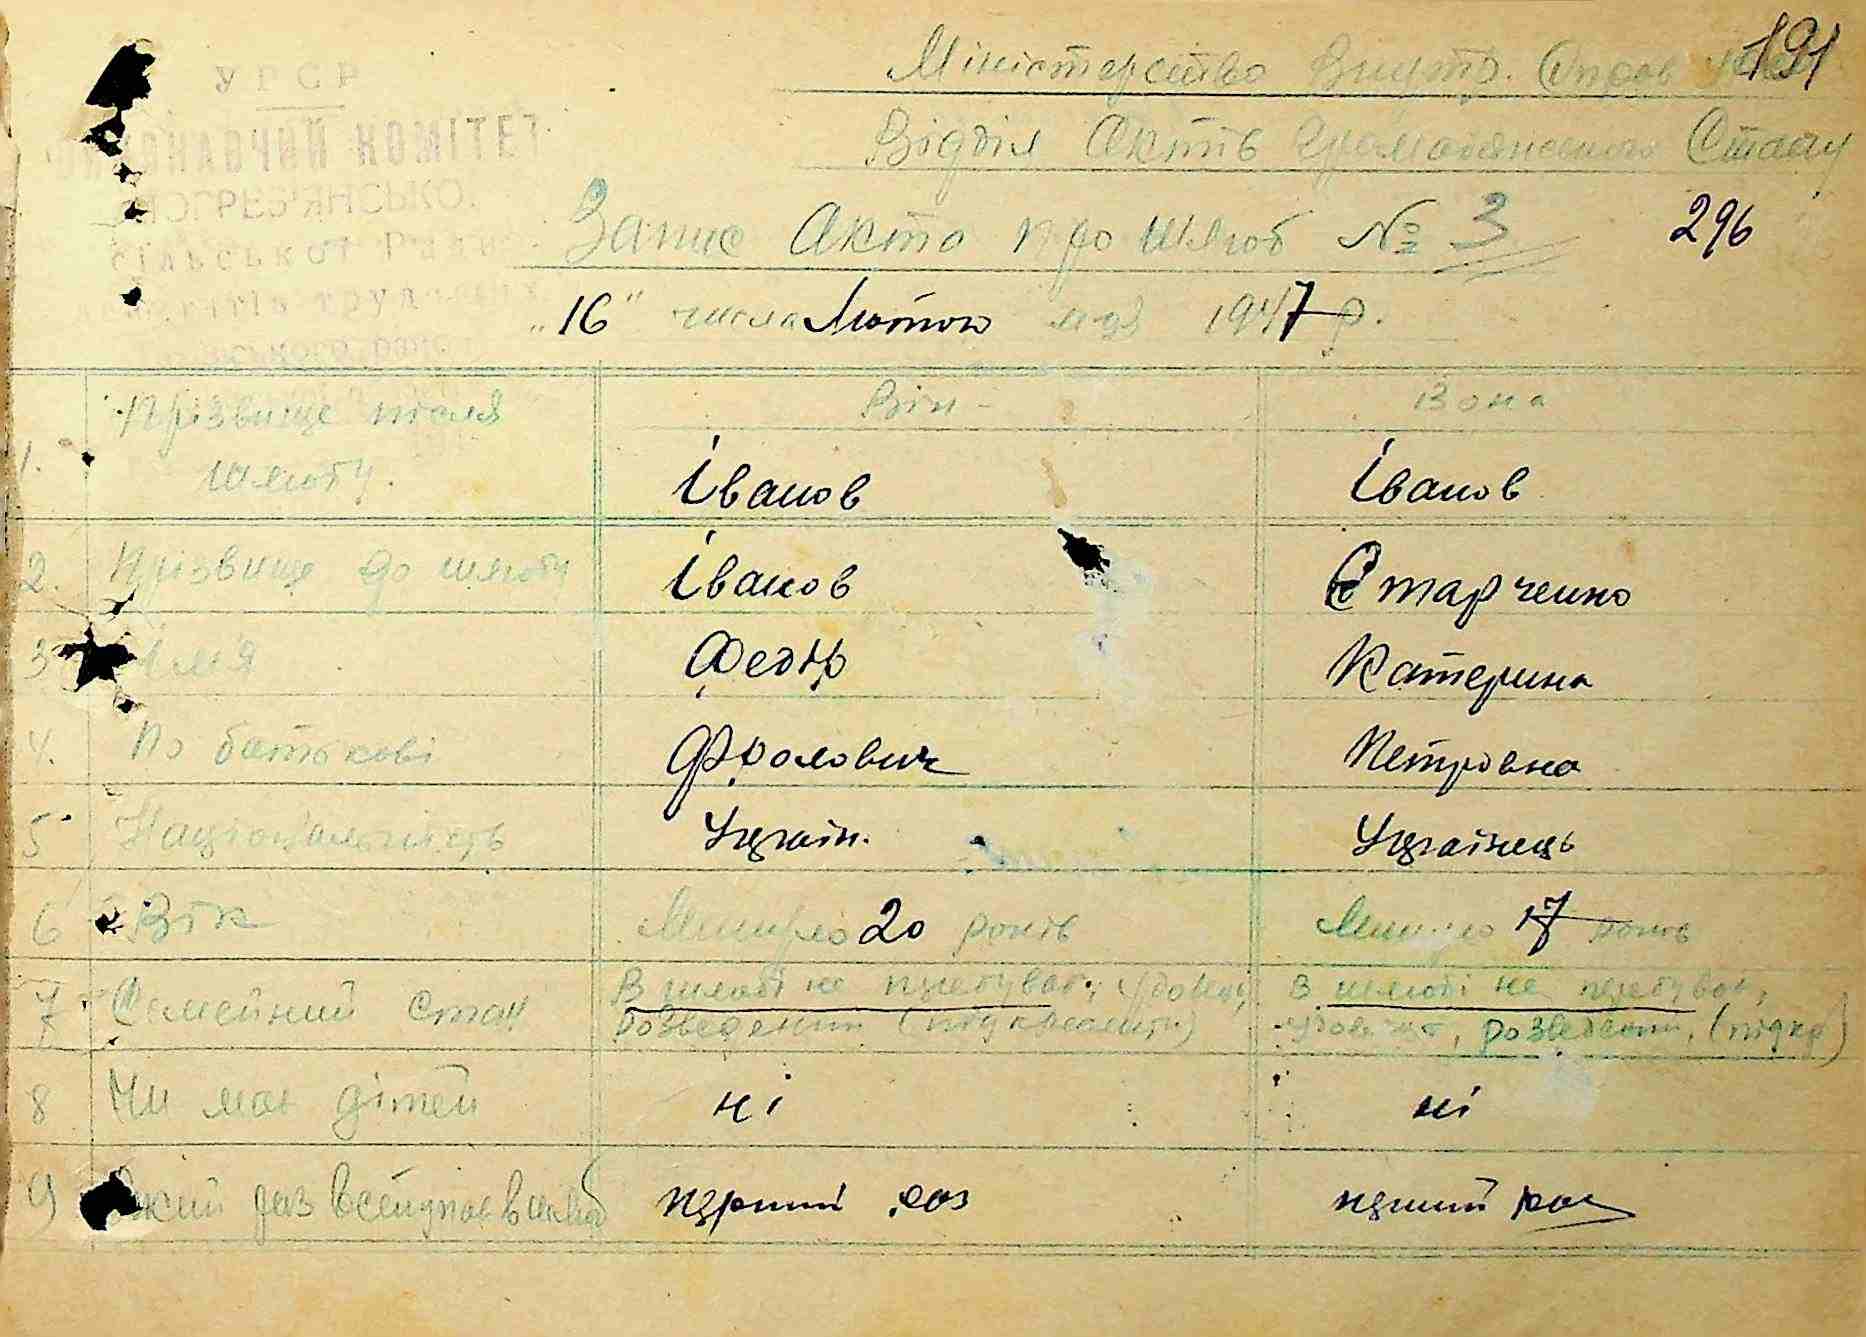 191
Міністерство Внутр. Справ
УРСР
Відділ Актів Громадянського Стану
ВИКОНАВЧИЙ КОМІТЕТ
ПОГРЕБ'ЯНСЬКО
сільської Ради
296
Запис Акто про шлюб № 3
депутатів трудящих
"16" числа Лютого м-ця 1947 р.
Прізвище після Він - Вона
1. шлюбу. Іванов Іванов
2. Прізвище до шлюбу Іванов Старченко
3 Імя Федір Катерина
4. По батькові Фролович Петровна
5 Національність Україн. Українець
6 Вік Минуло 20 років Минуло 17 років
7. Семейний стан В шлюбі не пребував, удовець, В шлюбі не пребував,
розведений (підкреслити) удовець, розведений, (підкр)
8 Чи має дітей ні ні
9 Який раз вступає в шлюб перший раз перший раз